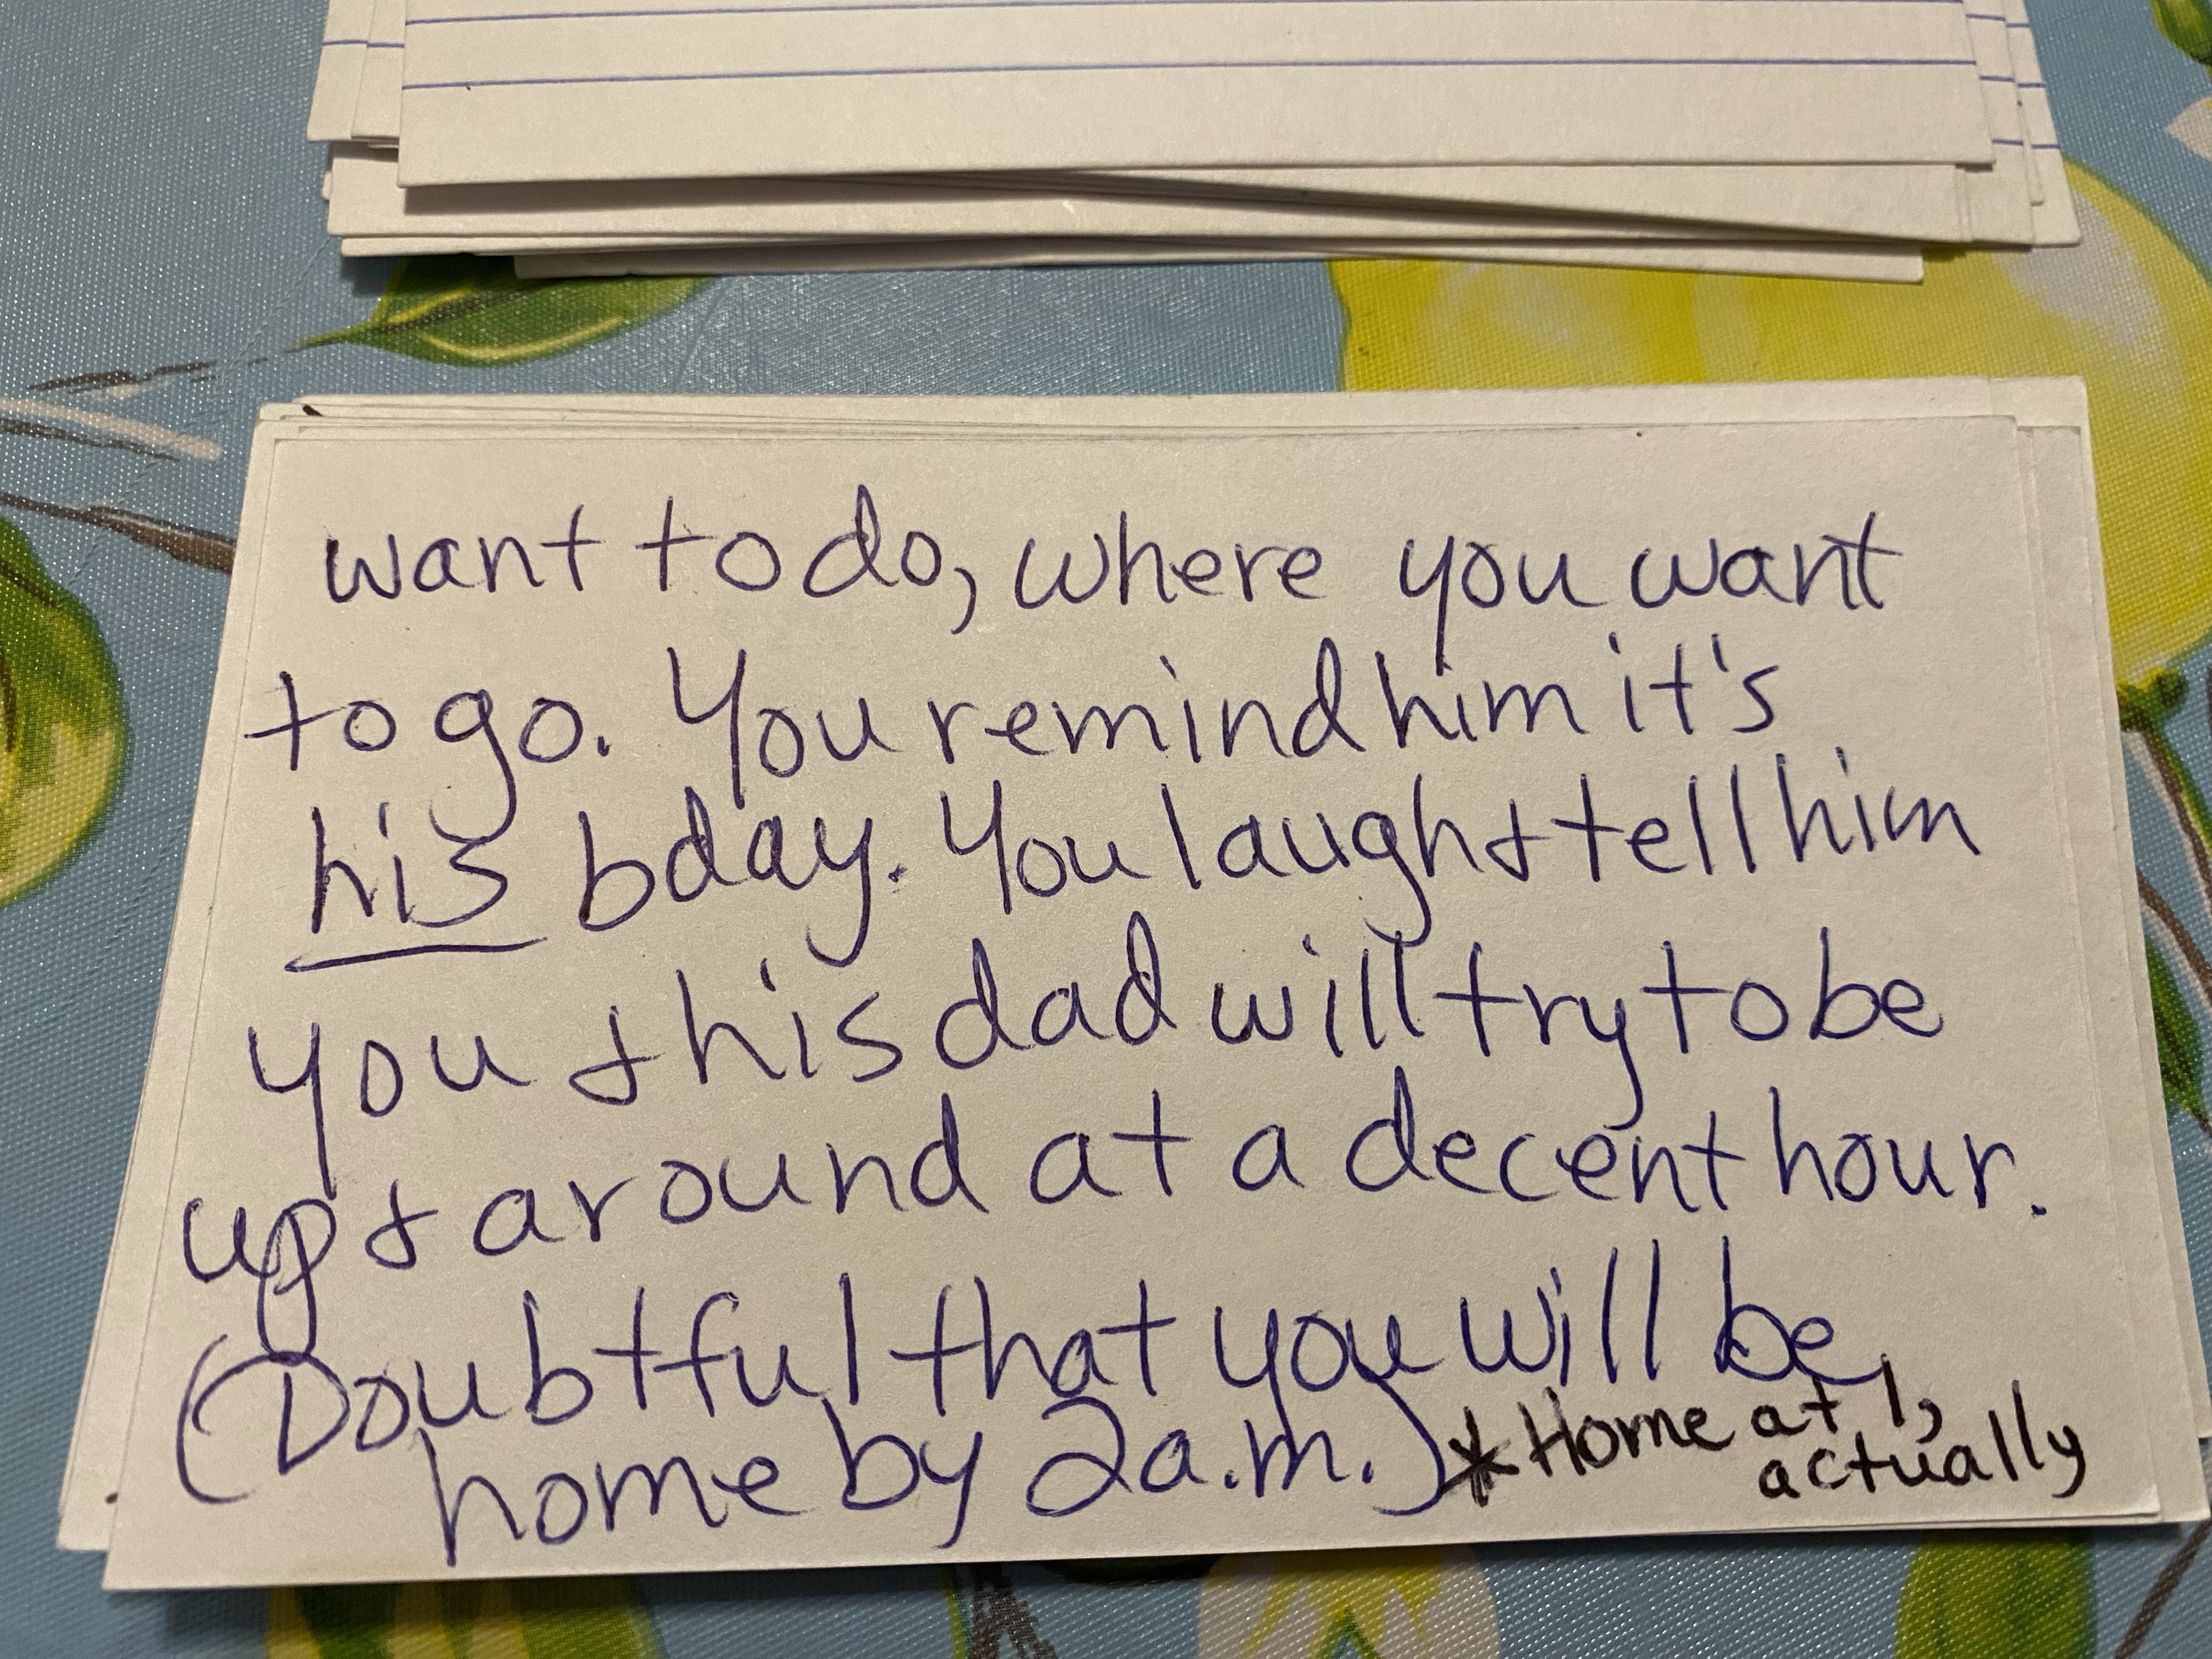 want to do, where you want
to go. You remind him it's
his bday. You laugh & tell him
you & his dad will try to be
up & around at a decent hour.
(Doubtful that you will be
home by 2 a.m.) * Home at 1,
actually